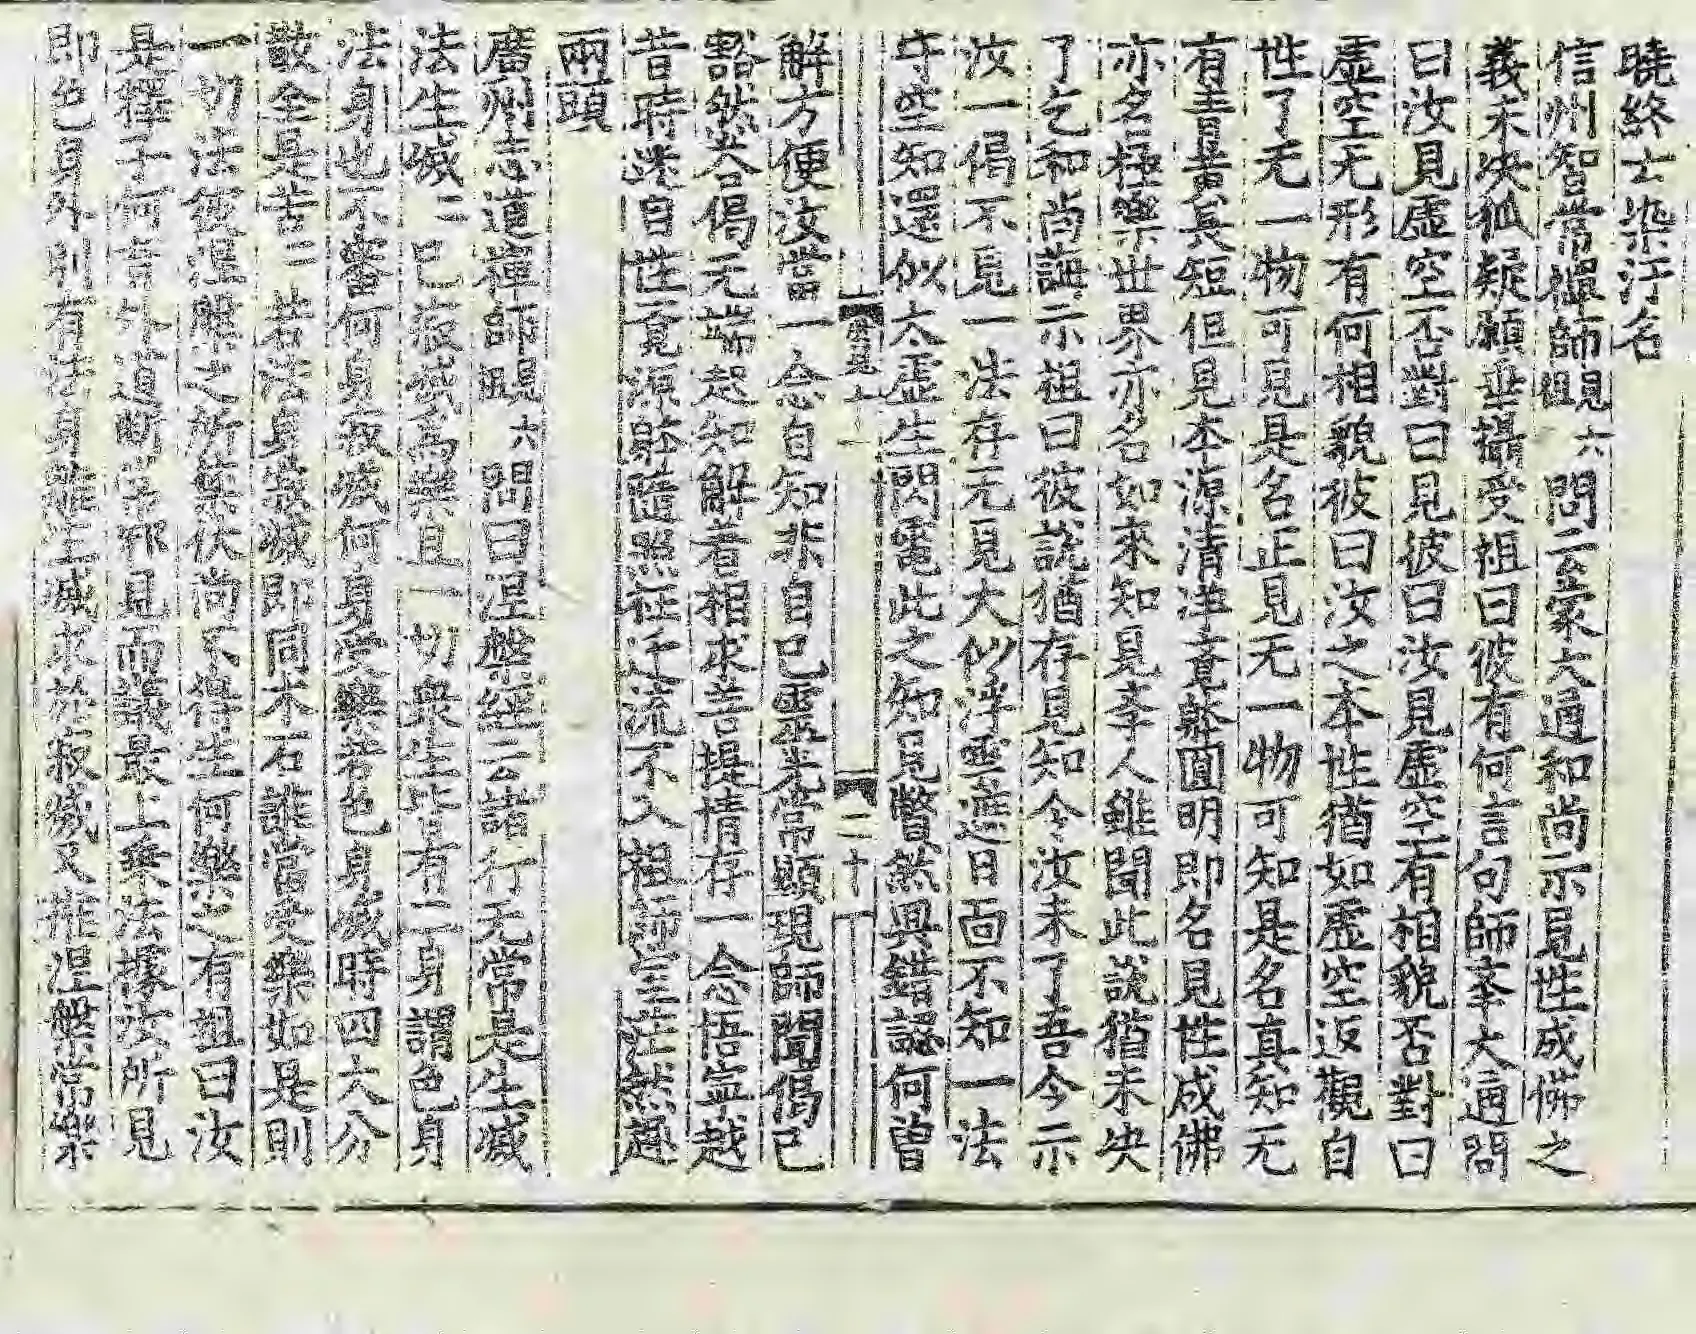 曉終士染汙名
信州智常禪師見六問云蒙大通和尚示見性成佛之
義未决狐疑願垂攝受祖曰彼有何言句師峯大通問
曰汝見虛空否對曰見彼曰汝見虛空有相貌否對曰
虛空无形有何相貌彼曰汝之本性猶如虛空返觀自
性了无一物可見是名正見无一物可知是名真知无
有青黃長短但見本源清淨覺躰圓明即名見性成佛
亦名極樂世界亦名如來知見李人雖聞此說猶未决
了乞和尚誨示祖曰彼說猶存見知令汝未了吾今示
汝一偈不見一法存无見大似浮雲遮日面不知一法
守空知還似太虛生閃電此之知見瞥然興錯認何曾
解方便汝當一念自知非自己靈光常顯現師聞偈已
豁然入偈无端起知解着相求菩提情存一念悟寧越
昔時迷自性覺源躰隨照枉迁流不入祖師室茫然趣
兩頭
廣州志道禪師見六問曰涅槃經云諸行无常是生滅
法生滅二已寂滅爲樂且一切衆生皆有二身謂色身
法身也不審何身寂滅何身受樂若色身滅時四大分
散全是苦二若法身寂滅即同木石誰當受樂如是則
一切法被涅槃之所禁伏尚不得生何樂之有祖曰汝
是釋子何言外道断常邪見而議最上乘法據汝所見
即色身外別有法身離生滅求於寂滅又推涅槃常樂